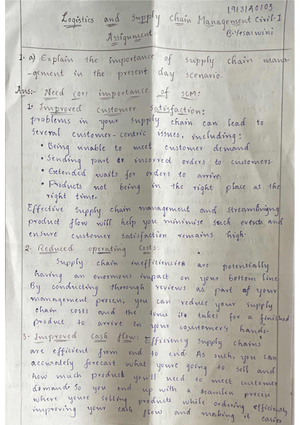 19131A0103
Logistics and Supply Chain Management Civil-I
Assignment B.Yesaswini
1. a) Explain the importance of supply chain mana-
-gement in the present day scenario.
Ans:- Need (or) importance of SCM:
1. Improved customer satisfaction:
problems in your supply chain can lead to
several customer-centric issues, including:
• Being unable to meet customer demand
• Sending part or incorrect orders to customers
• Extended waits for orders to arrive
• Products not being in the right place at the
right time.
Effective supply chain management and streamlining
product flow will help you minimise such events and
ensure customer satisfaction remains high.
2. Reduced operating costs:
Supply chain inefficiencies are potentially
having an enormous impact on your bottom line
By conducting through reviews as part of your
management process, you can reduce your supply
chain costs and the time it takes for a finished
product to arrive in your customer's hands.
3. Improved cash flow: Efficiency supply chains
are efficient from end to end. As such, you can
accurately forecast what you're going to sell and
how much product you'll need to meet customer
demand. So you end up with a seamless process
where you're selling products while ordering efficiently,
improving your cash flow and making it easier